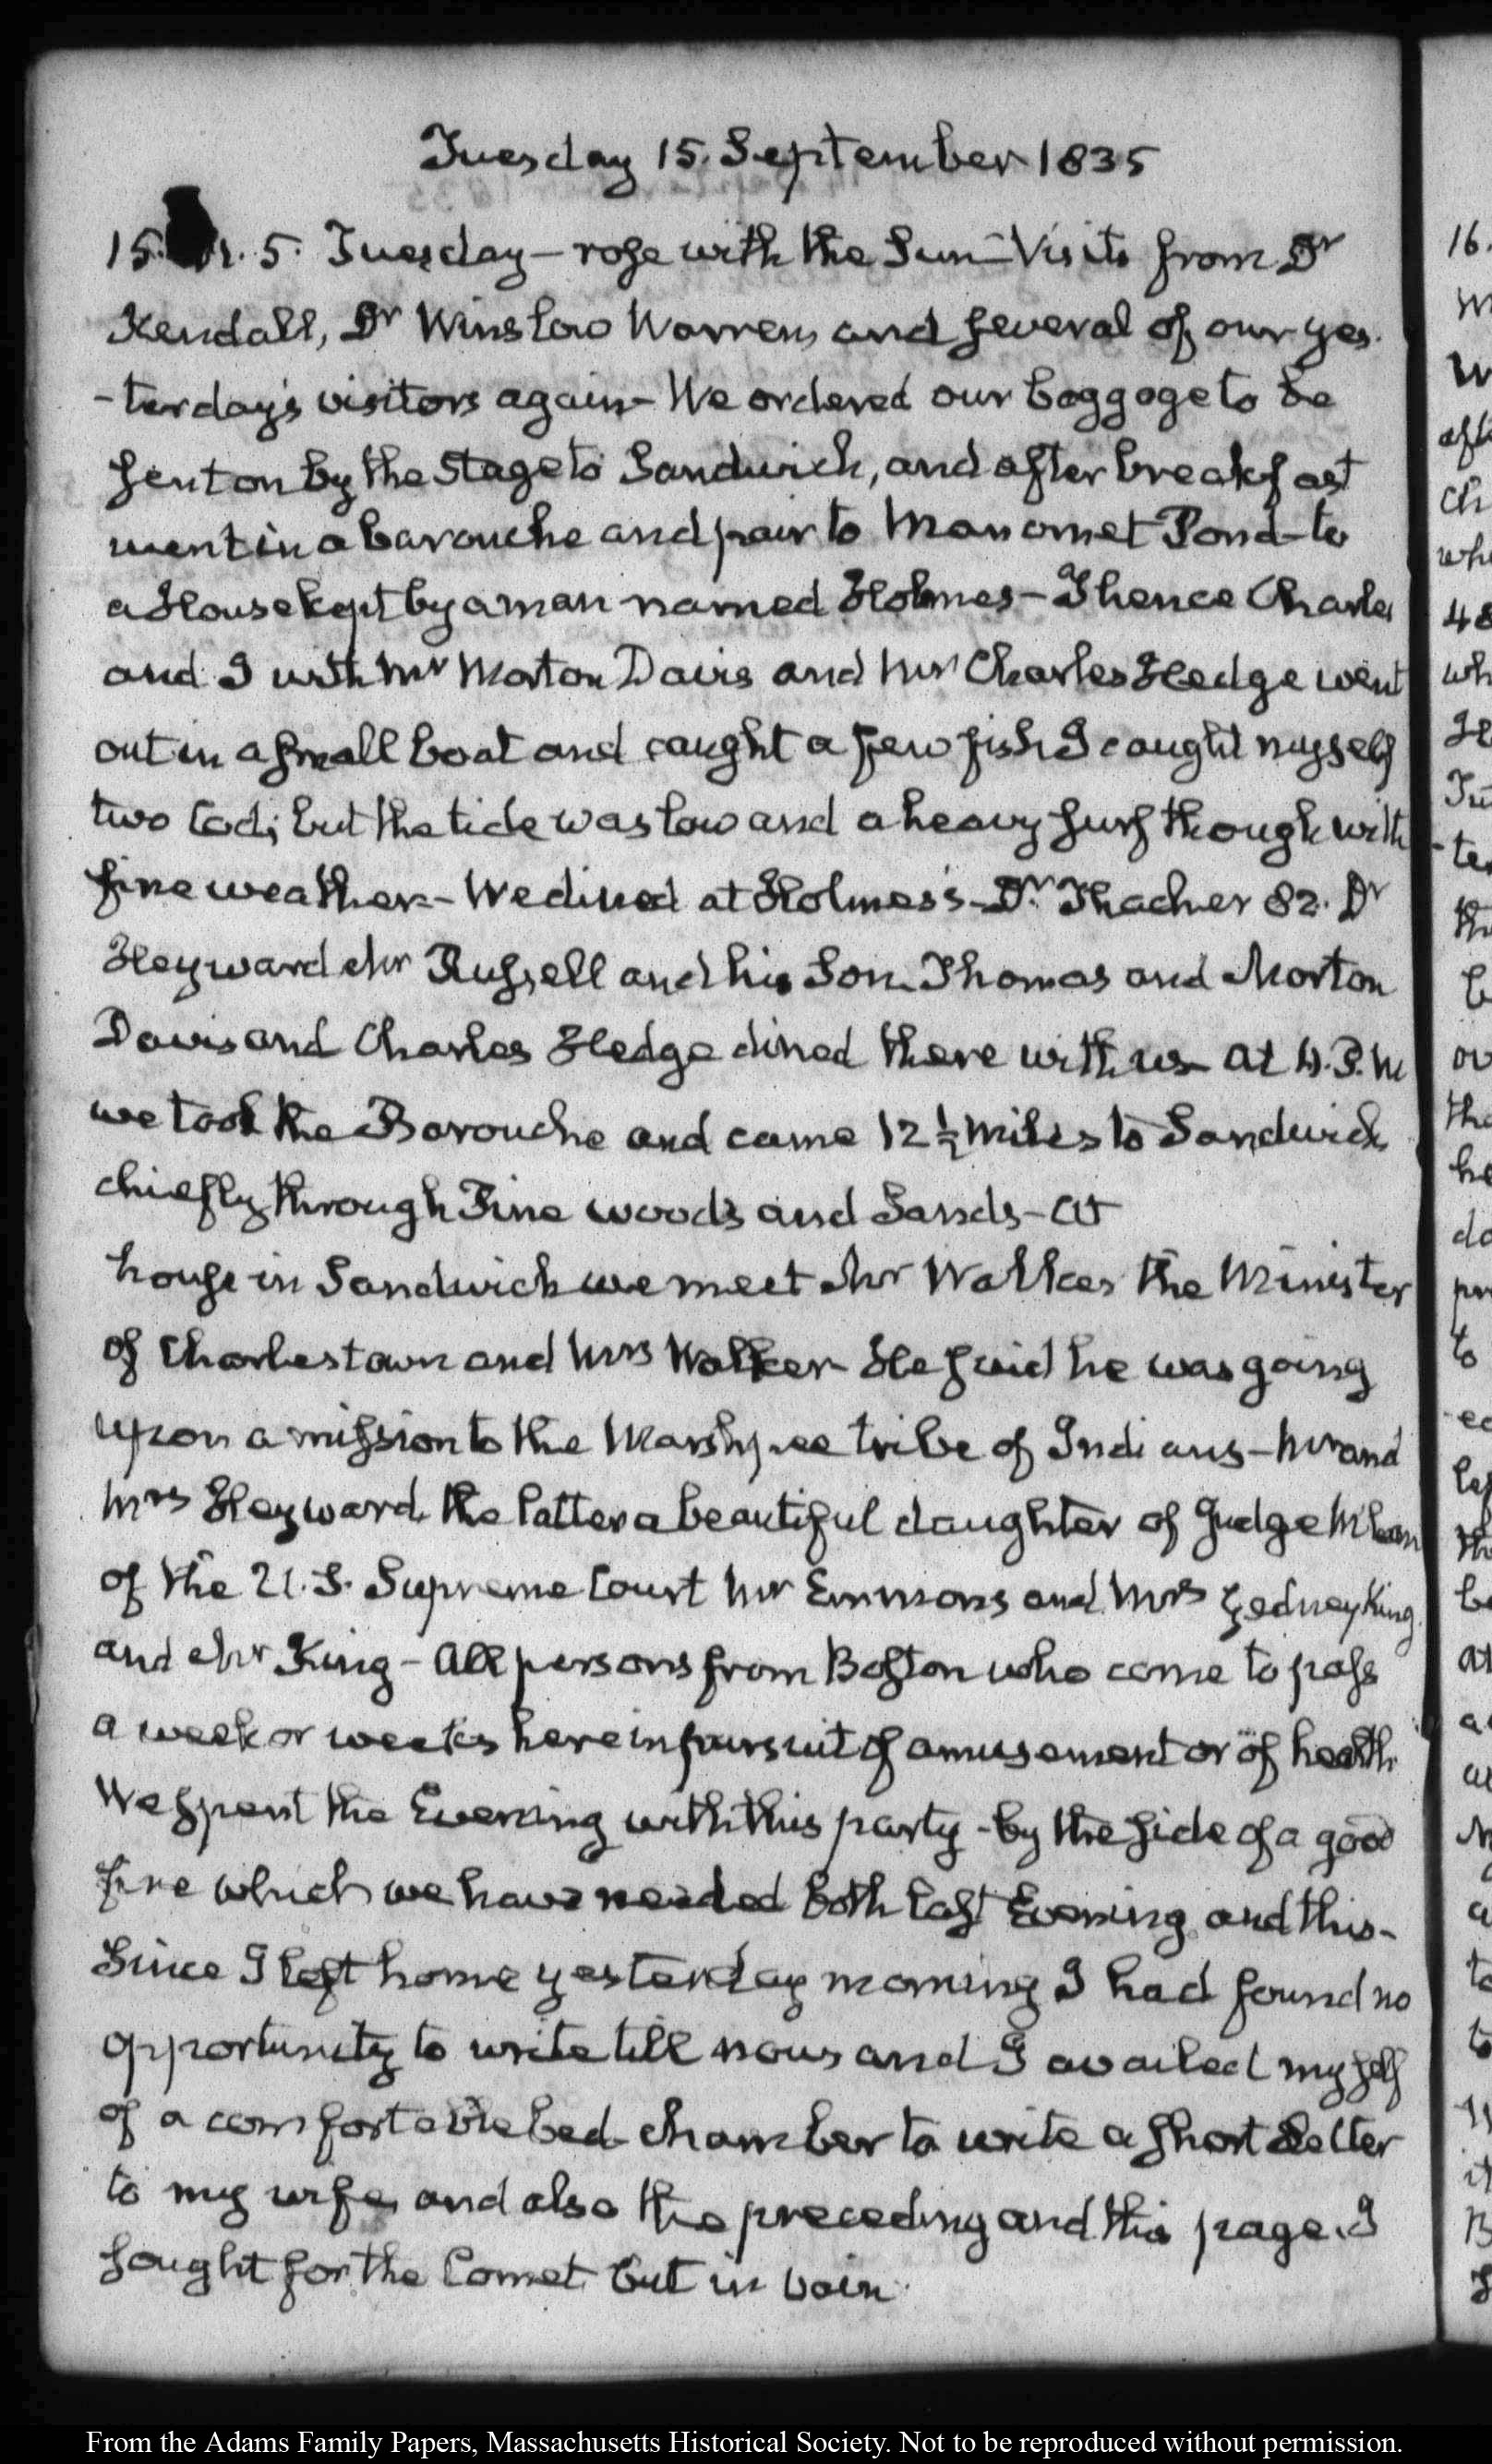 Tuesday 15. September 1835
15. 5. Tuesday — rose with the Sun — Visits from Dr
Kendall, Dr Winslow Warren, and several of our yes-
-terday's visitors again — We ordered our baggage to be
sent on by the Stage to Sandwich, and after breakfast
went in a barouche and pair to Manomet Pond — to
a House kept by a man named Holmes — Thence Charles
and I with Mr Morton Davis and Mr Charles Hedge went
out in a small boat and caught a few fish I caught myself
two Cod; but the tide was low and a heavy surf though with
fine weather — We dined at Holmes's — Dr Thacher 82. Dr
Heyward Mr Russell and his Son Thomas and Morton
Davis and Charles Hedge dined there with us — At 4. P.M
we took the Barouche and came 12 ½ miles to Sandwich
chiefly through Pine woods and Sands — At
house in Sandwich we meet Mr Walker the Minister
of Charlestown and Mrs Walker — He said he was going
upon a mission to the Marshpee tribe of Indians — Mr and
Mrs Heyward, the latter a beautiful daughter of Judge McLean
of the U.S. Supreme Court Mr Emmons and Mrs Gedney King
and Mr King — All persons from Boston who come to pass
a week or weeks here in pursuit of amusement or of health
We spent the Evening with this party — by the side of a good
fire which we have needed both last Evening and this —
Since I left home yesterday morning I had found no
opportunity to write till now and I availed myself
of a comfortable bed-chamber to write a short Letter
to my wife, and also the preceding and this page. I
sought for the Comet but in vain.
16.
From the Adams Family Papers, Massachusetts Historical Society. Not to be reproduced without permission.